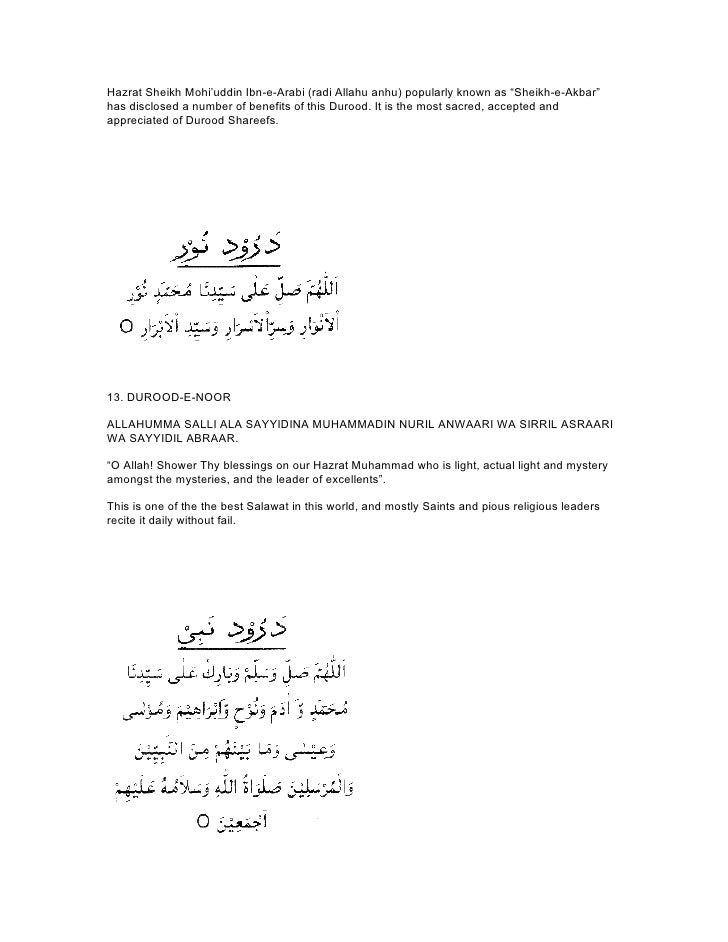 Hazrat Sheikh Mohi’uddin Ibn-e-Arabi (radi Allahu anhu) popularly known as “Sheikh-e-Akbar”
has disclosed a number of benefits of this Durood. It is the most sacred, accepted and
appreciated of Durood Shareefs.
دَرُوْدِ نُوْر
اَللّٰهُمَّ صَلِّ عَلٰى سَيِّدِنَا مُحَمَّدٍ نُوْرِ
الْاَنْوَارِ وَسِرِّ الْاَسْرَارِ وَسَيِّدِ الْاَبْرَارِ O
13. DUROOD-E-NOOR
ALLAHUMMA SALLI ALA SAYYIDINA MUHAMMADIN NURIL ANWAARI WA SIRRIL ASRAARI
WA SAYYIDIL ABRAAR.
“O Allah! Shower Thy blessings on our Hazrat Muhammad who is light, actual light and mystery
amongst the mysteries, and the leader of excellents”.
This is one of the the best Salawat in this world, and mostly Saints and pious religious leaders
recite it daily without fail.
دَرُوْدِ نَبِىْ
اَللّٰهُمَّ صَلِّ وَسَلِّمْ وَبَارِكْ عَلٰى سَيِّدِنَا
مُحَمَّدٍ وَّ اٰدَمَ وَنُوْحٍ وَّاِبْرَاهِيْمَ وَمُوْسٰى
وَعِيْسٰى وَمَا بَيْنَهُمْ مِنَ النَّبِيِّيْنَ
وَالْمُرْسَلِيْنَ صَلَوَاةُ اللّٰهِ وَسَلَامُهُ عَلَيْهِمْ
اَجْمَعِيْنَ O